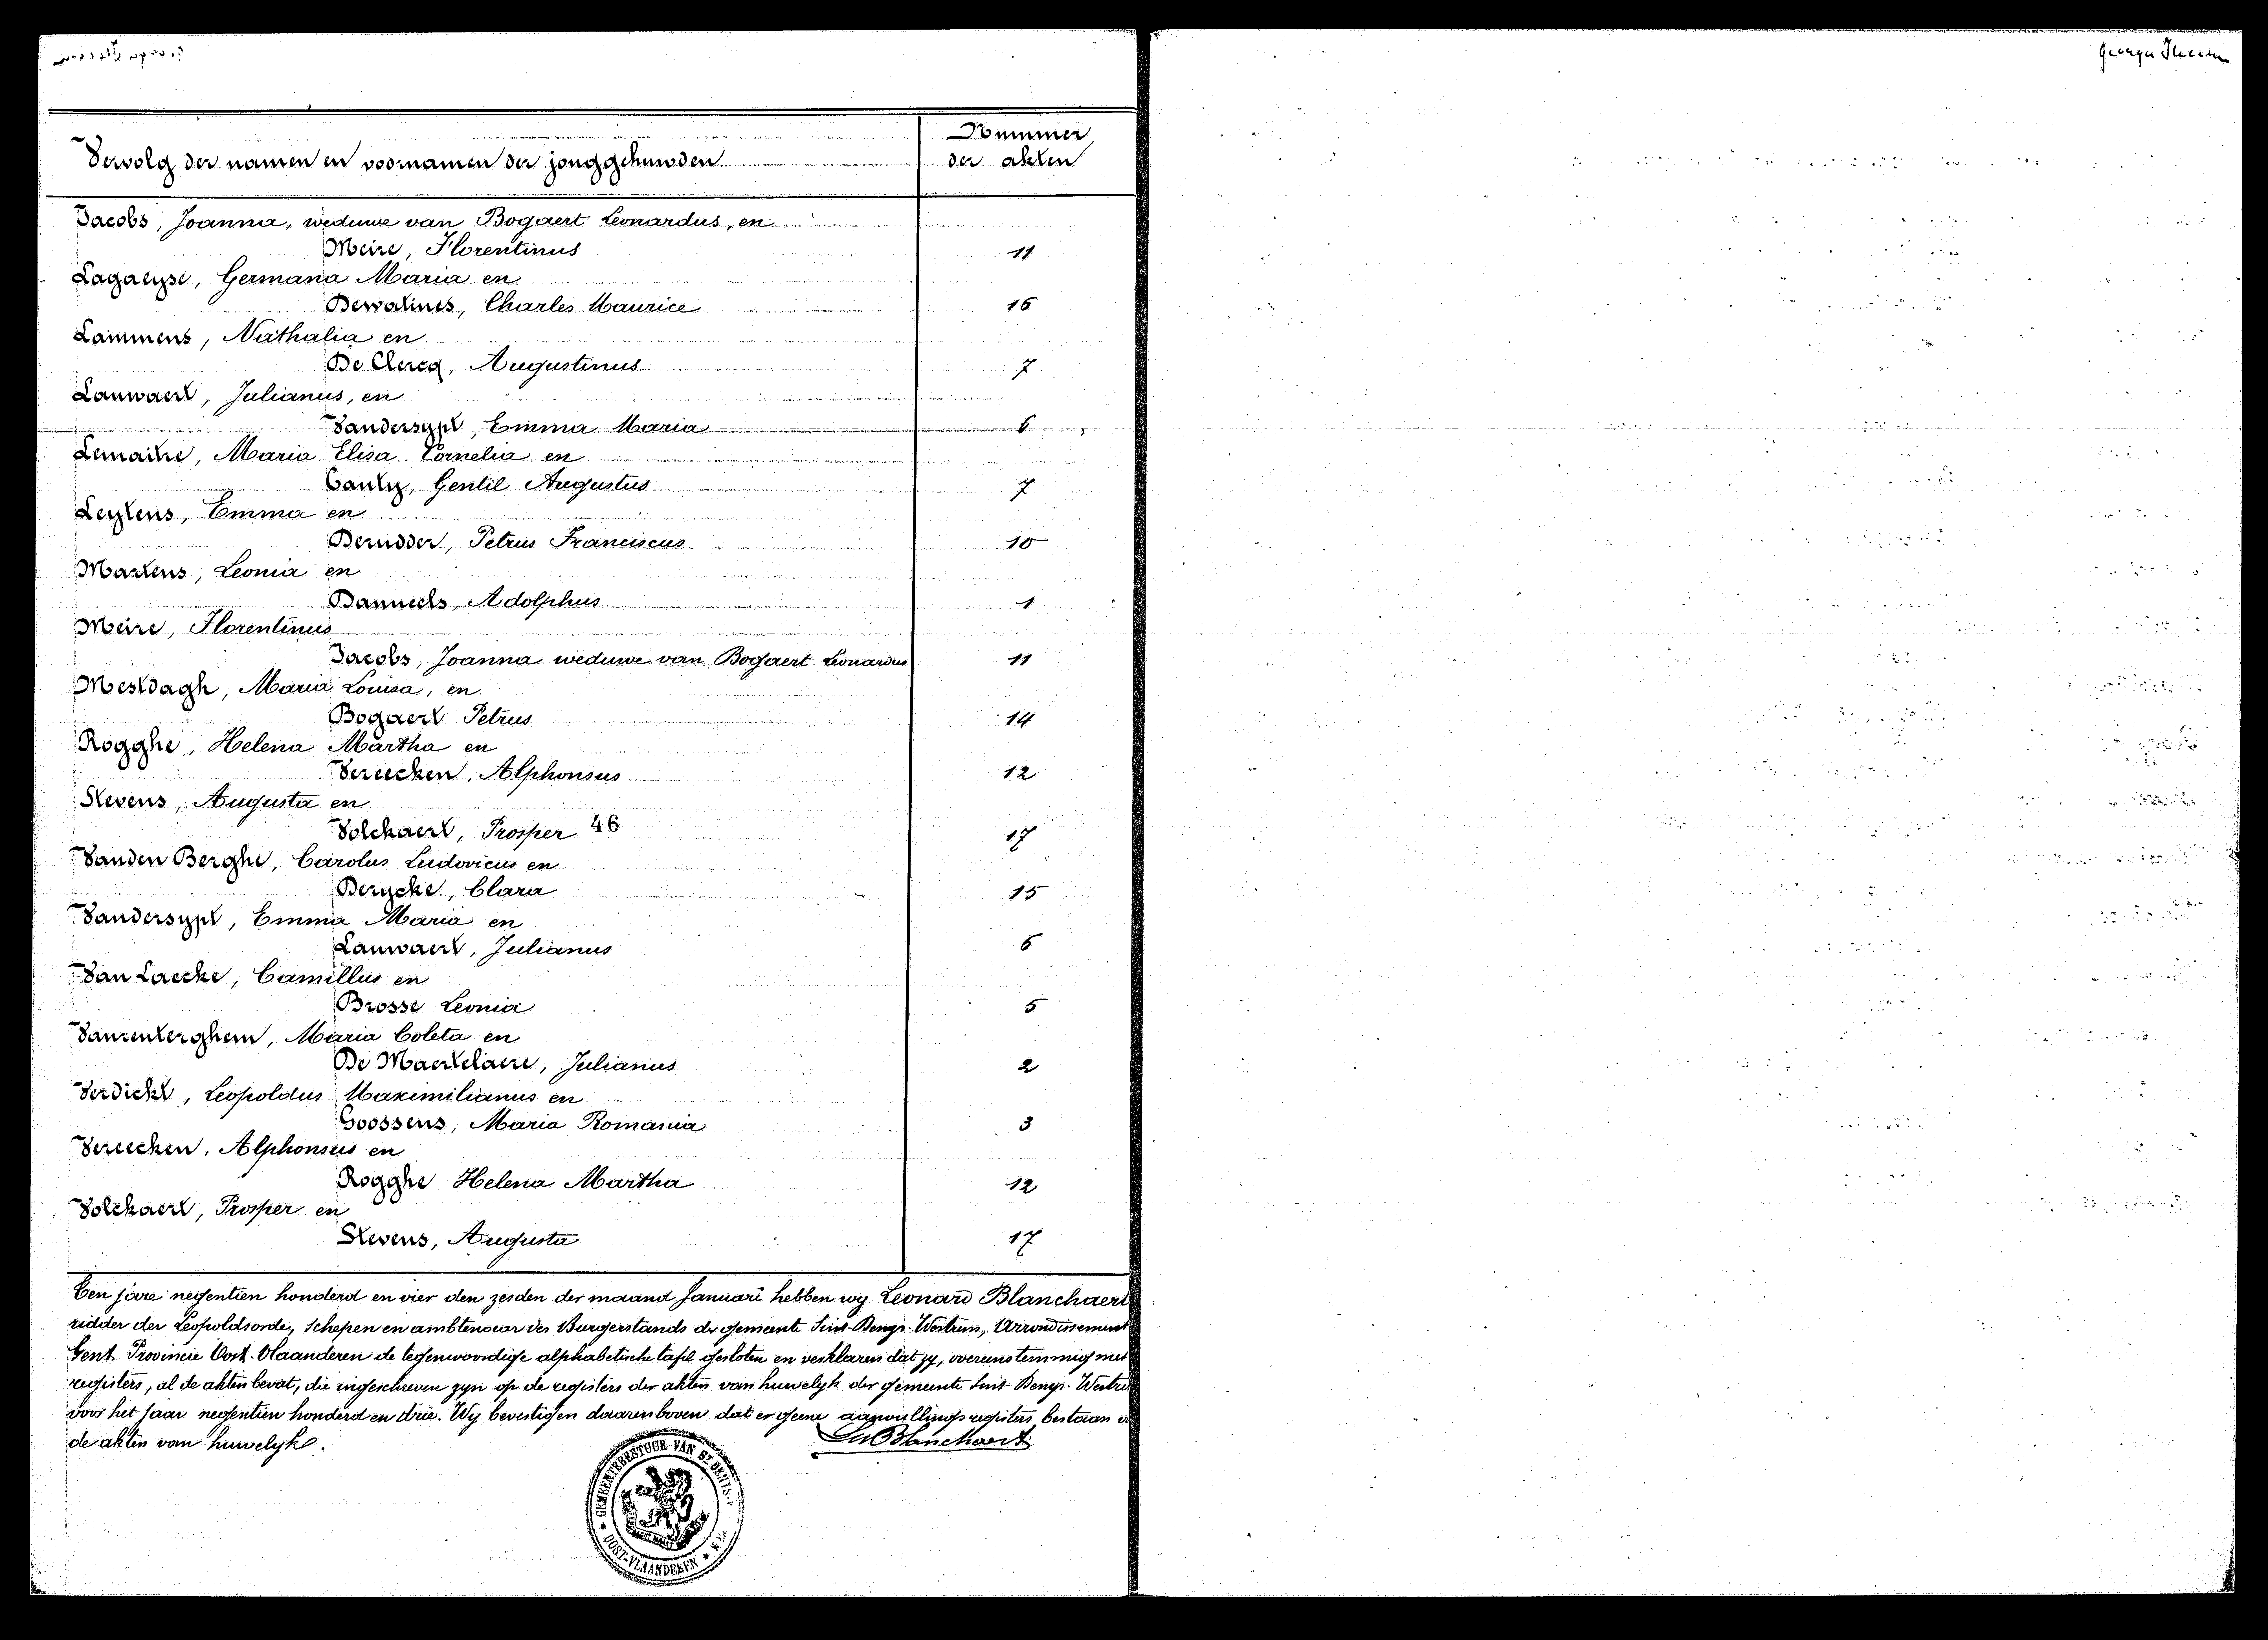 Vervolg der namen en voornamen der jonggehuwden
Nummer
der akten
Jacobs, Joanna, weduwe van Bogaert Leonardus, en
Meire, Florentinus 11
Lagaeysse, Germana Maria en
Dewatines, Charles Maurice 16
Lammens, Nathalia en
De Clercq, Augustinus 7
Lauwaert, Julianus, en
Vandersypt, Emma Maria 6
Lemaitre, Maria Elisa Cornelia en
Cauly, Gentil Augustus 7
Leytens, Emma en
Deridder, Petrus Franciscus 10
Martens, Leonia en
Danneels, Adolphus 1
Meire, Florentinus
Jacobs, Joanna weduwe van Bogaert Leonardus 11
Mestdagh, Maria Louisa, en
Bogaert Petrus 14
Rogghe, Helena Martha en
Vereecken, Alphonsus 12
Stevens, Augusta en
Volckaert, Prosper 46 17
Vanden Berghe, Carolus Ludovicus en
Derycke, Clara 15
Vandersypt, Emma Maria en
Lauwaert, Julianus 6
Van Laecke, Camillus en
Brosse Leonia 5
Vanrenterghem, Maria Coleta en
De Maertelaere, Julianus 2
Verdickt, Leopoldus Maximilianus en
Goossens, Maria Romania 3
Vereecken, Alphonsus en
Rogghe Helena Martha 12
Volckaert, Prosper en
Stevens, Augusta 17
Ten jare negentien honderd en vier den zesden der maand Januari hebben wy Leonard Blanchaert
ridder der Leopoldsorde, Schepen en ambtenaar des Burgerstands der gemeente Sint-Denys-Westrem, Arrondissement
Gent Provincie Oost-Vlaanderen de tegenwoordige alphabetische tafel gesloten en verklaren dat zy, overeenstemmig met
registers, al de akten bevat, die ingeschreven zyn op de registers der akten van huwelyk der gemeente Sint-Denys-Westre
voor het jaar negentien honderd en drie. Wy bevestigen daarenboven dat er geene aanvullingsregisters bestaan
de akten van huwelyk.
Blanchaert
GEMEENTEBESTUUR VAN ST DENYS
OOST-VLAANDEREN